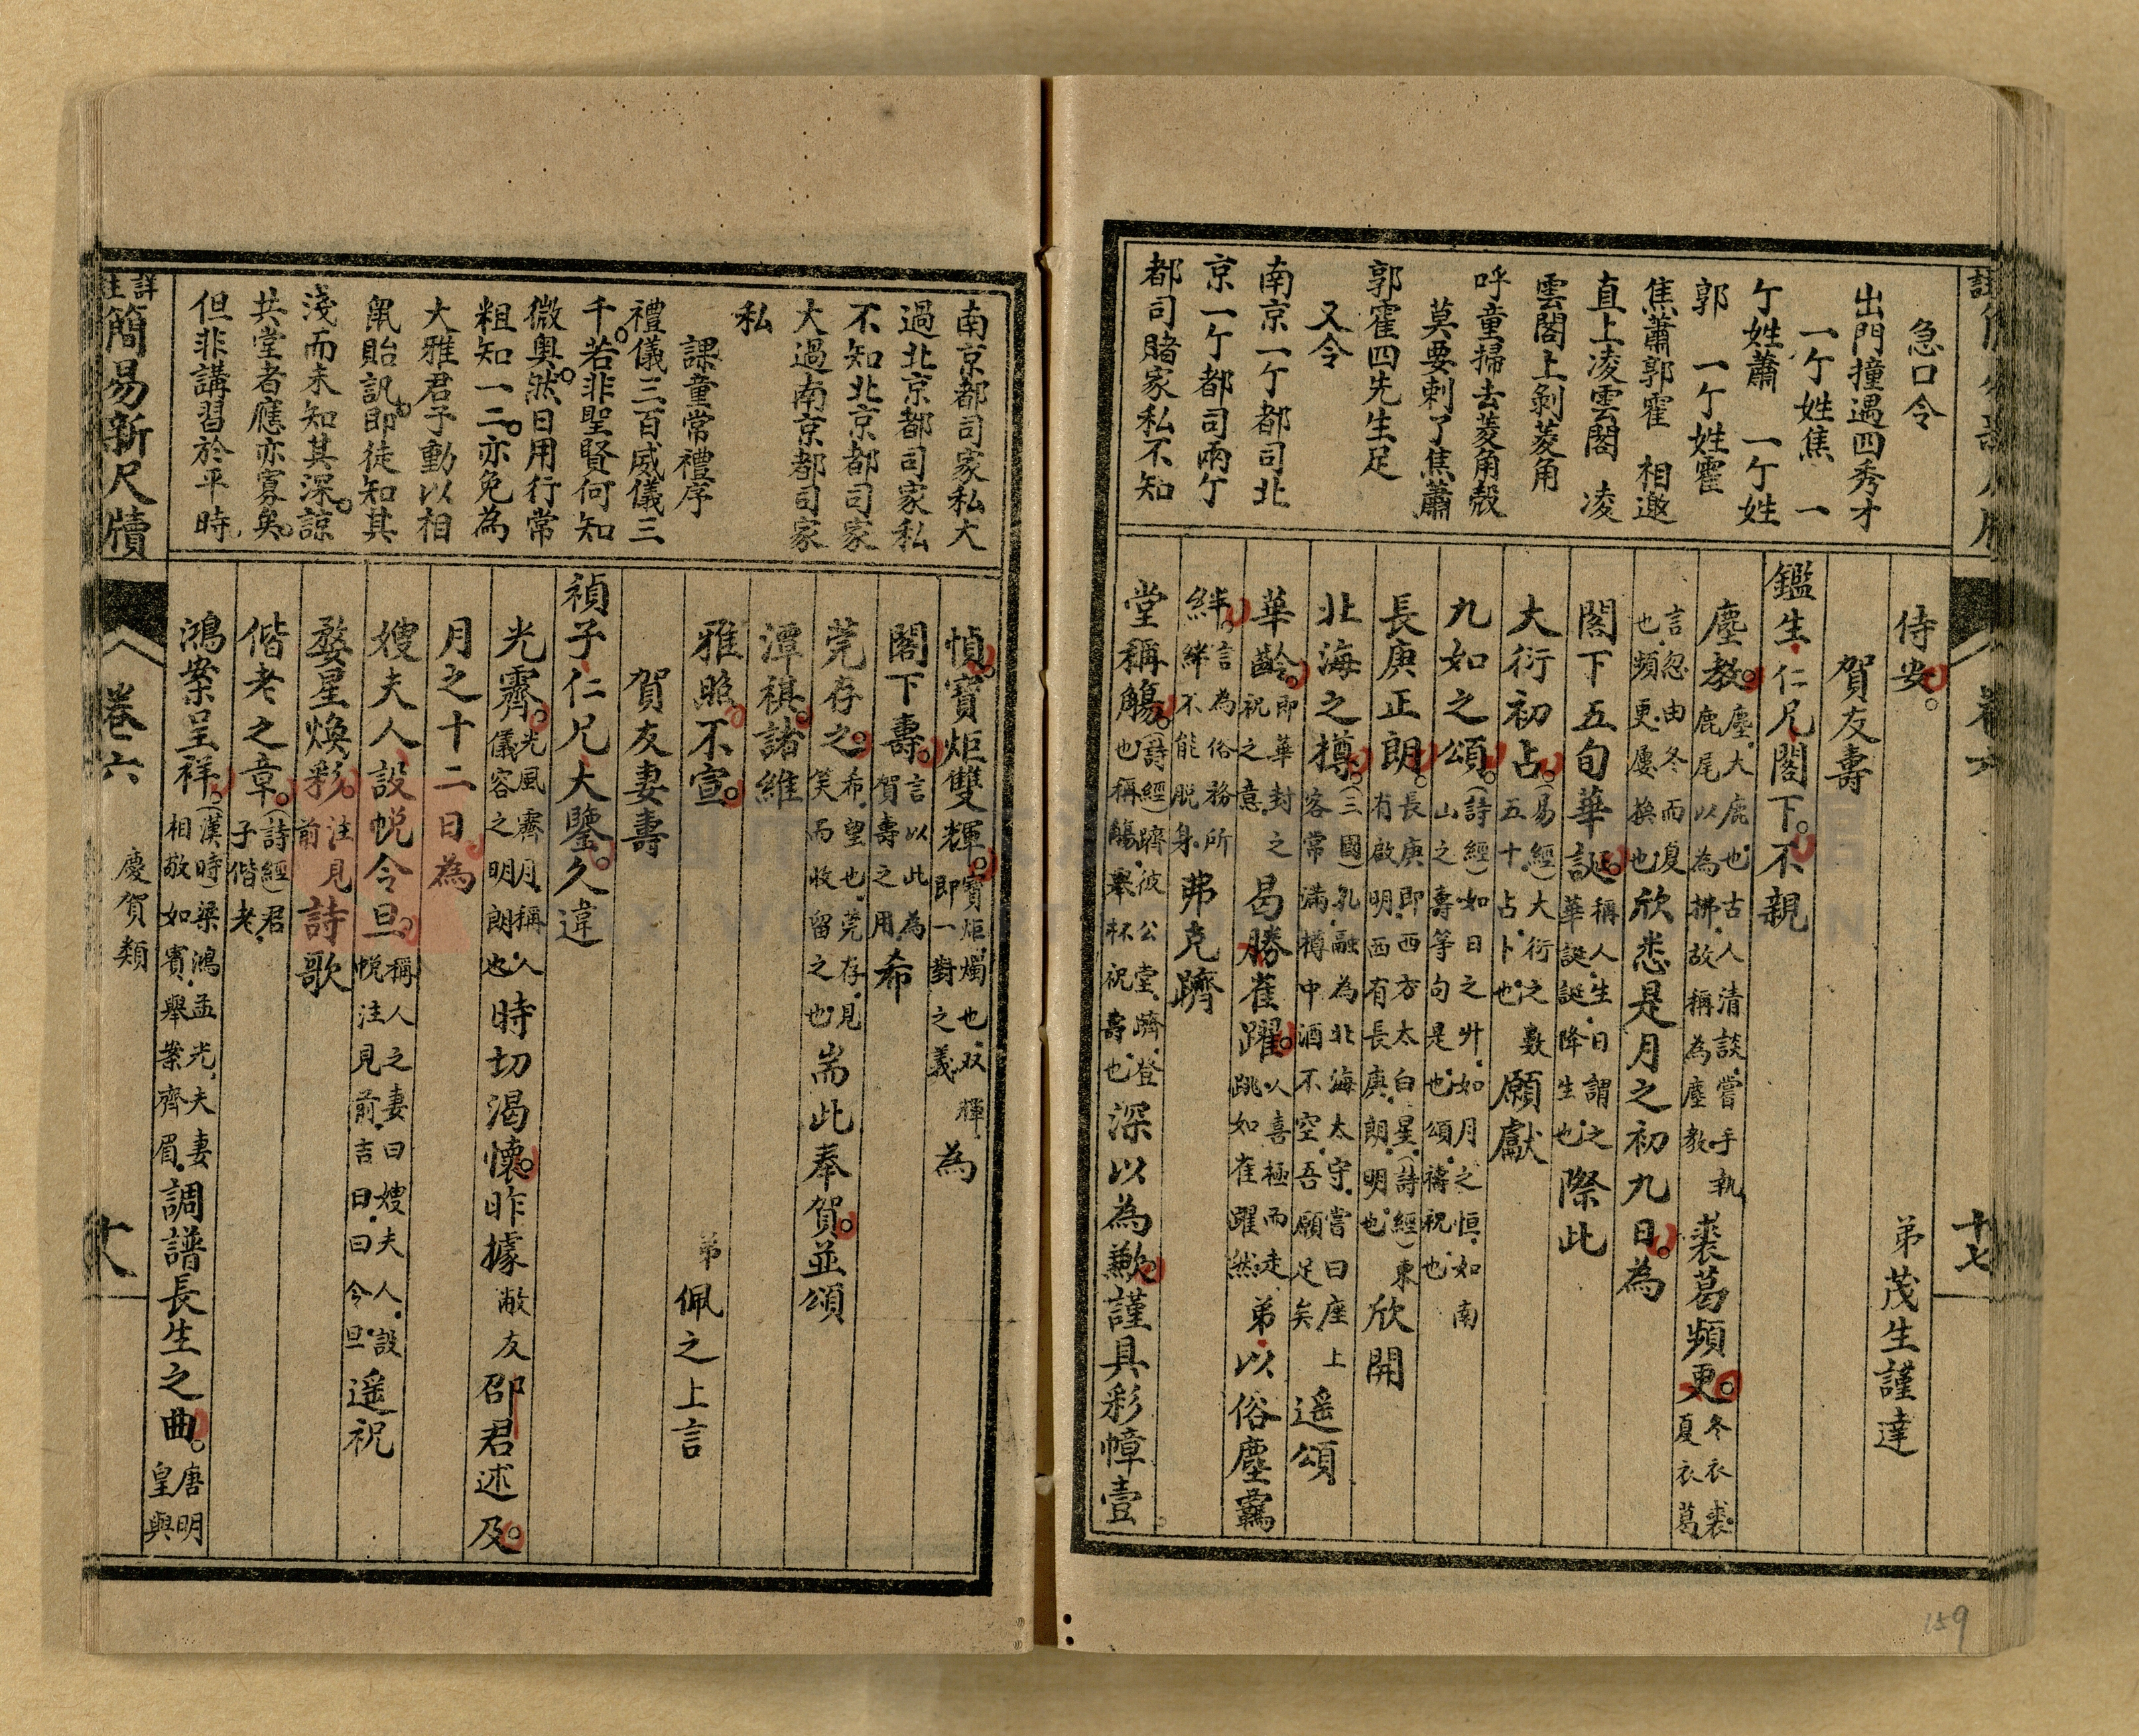 急口令
出門撞遇四秀才
一亇姓焦　一
亇姓蕭　一亇姓
郭　一亇姓霍
焦蕭郭霍　相邀
直上凌雲閣　凌
雲閣上剝菱角
呼童掃去菱角殼
莫要刺了焦蕭
郭霍四先生足
又令
南京一亇都司北
京一亇都司兩亇
都司賭家私不知
侍安。
弟茂生謹達
賀友壽
鑑生仁兄閣下。不親
塵教。塵大鹿也古人清談嘗手執鹿尾以為拂故稱為塵教裘葛頻更。冬衣裘夏衣葛
言忽由冬而夏也頻更屢換也欣悉是月之初九日。為
閣下五旬華誕。稱人生日謂之華誕誕降生也際此
大衍初占。(易經)大衍之數五十占卜也願獻
九如之頌。(詩經)如日之升如月之恒如南山之壽等句是也頌禱祝也
長庚正朗。長庚即西方太白星(詩經)東有啟明西有長庚朗明也欣開
北海之樽。(三國)孔融為北海太守嘗曰座上客常滿樽中酒不空吾願足矣遥頌
華齡。即華封之祝之意曷勝雀躍。人喜極而走跳如雀躍然弟以俗塵羈
絆。言為俗務所絆絆不能脫身弗克躋
堂稱觴。(詩經)躋彼公堂躋登也稱觴舉杯祝壽也深以為歉。謹具彩幛壹
卷六
十七
159
南京都司家私大
過北京都司家私
不知北京都司家
大過南京都司家
私
課童常禮序
禮儀三百威儀三
千。若非聖賢何知
微奥。然日用行常
粗知一二。亦免為
大雅君子動以相
鼠貽訊。即徒知其
淺而未知其深。諒
共堂者應亦寡矣。
但非講習於平時
幀。寶炬雙輝。寶炬燭也双輝即一對之義為
閣下壽。言以此為賀壽之用希
莞存之。希望也莞存見笑而收留之也耑此奉賀。並頌
潭祺。諸維
雅照。不宣。
弟佩之上言
賀友妻壽
禎子仁兄大鑒。久違
光霽。光風霽月稱人儀容之明朗也時切渴懷。昨據敝友邵君述及。
月之十二日。為
嫂夫人設帨令旦。稱人之妻曰嫂夫人設帨注見前吉日曰令旦遥祝
婺星煥彩。注見前詩歌
偕老之章。(詩經)君子偕老
鴻案呈祥。(漢時)梁鴻孟光夫妻相敬如賓舉案齊眉調譜長生之曲。唐明皇與
詳註簡易新尺牘
卷六
慶賀類
十八